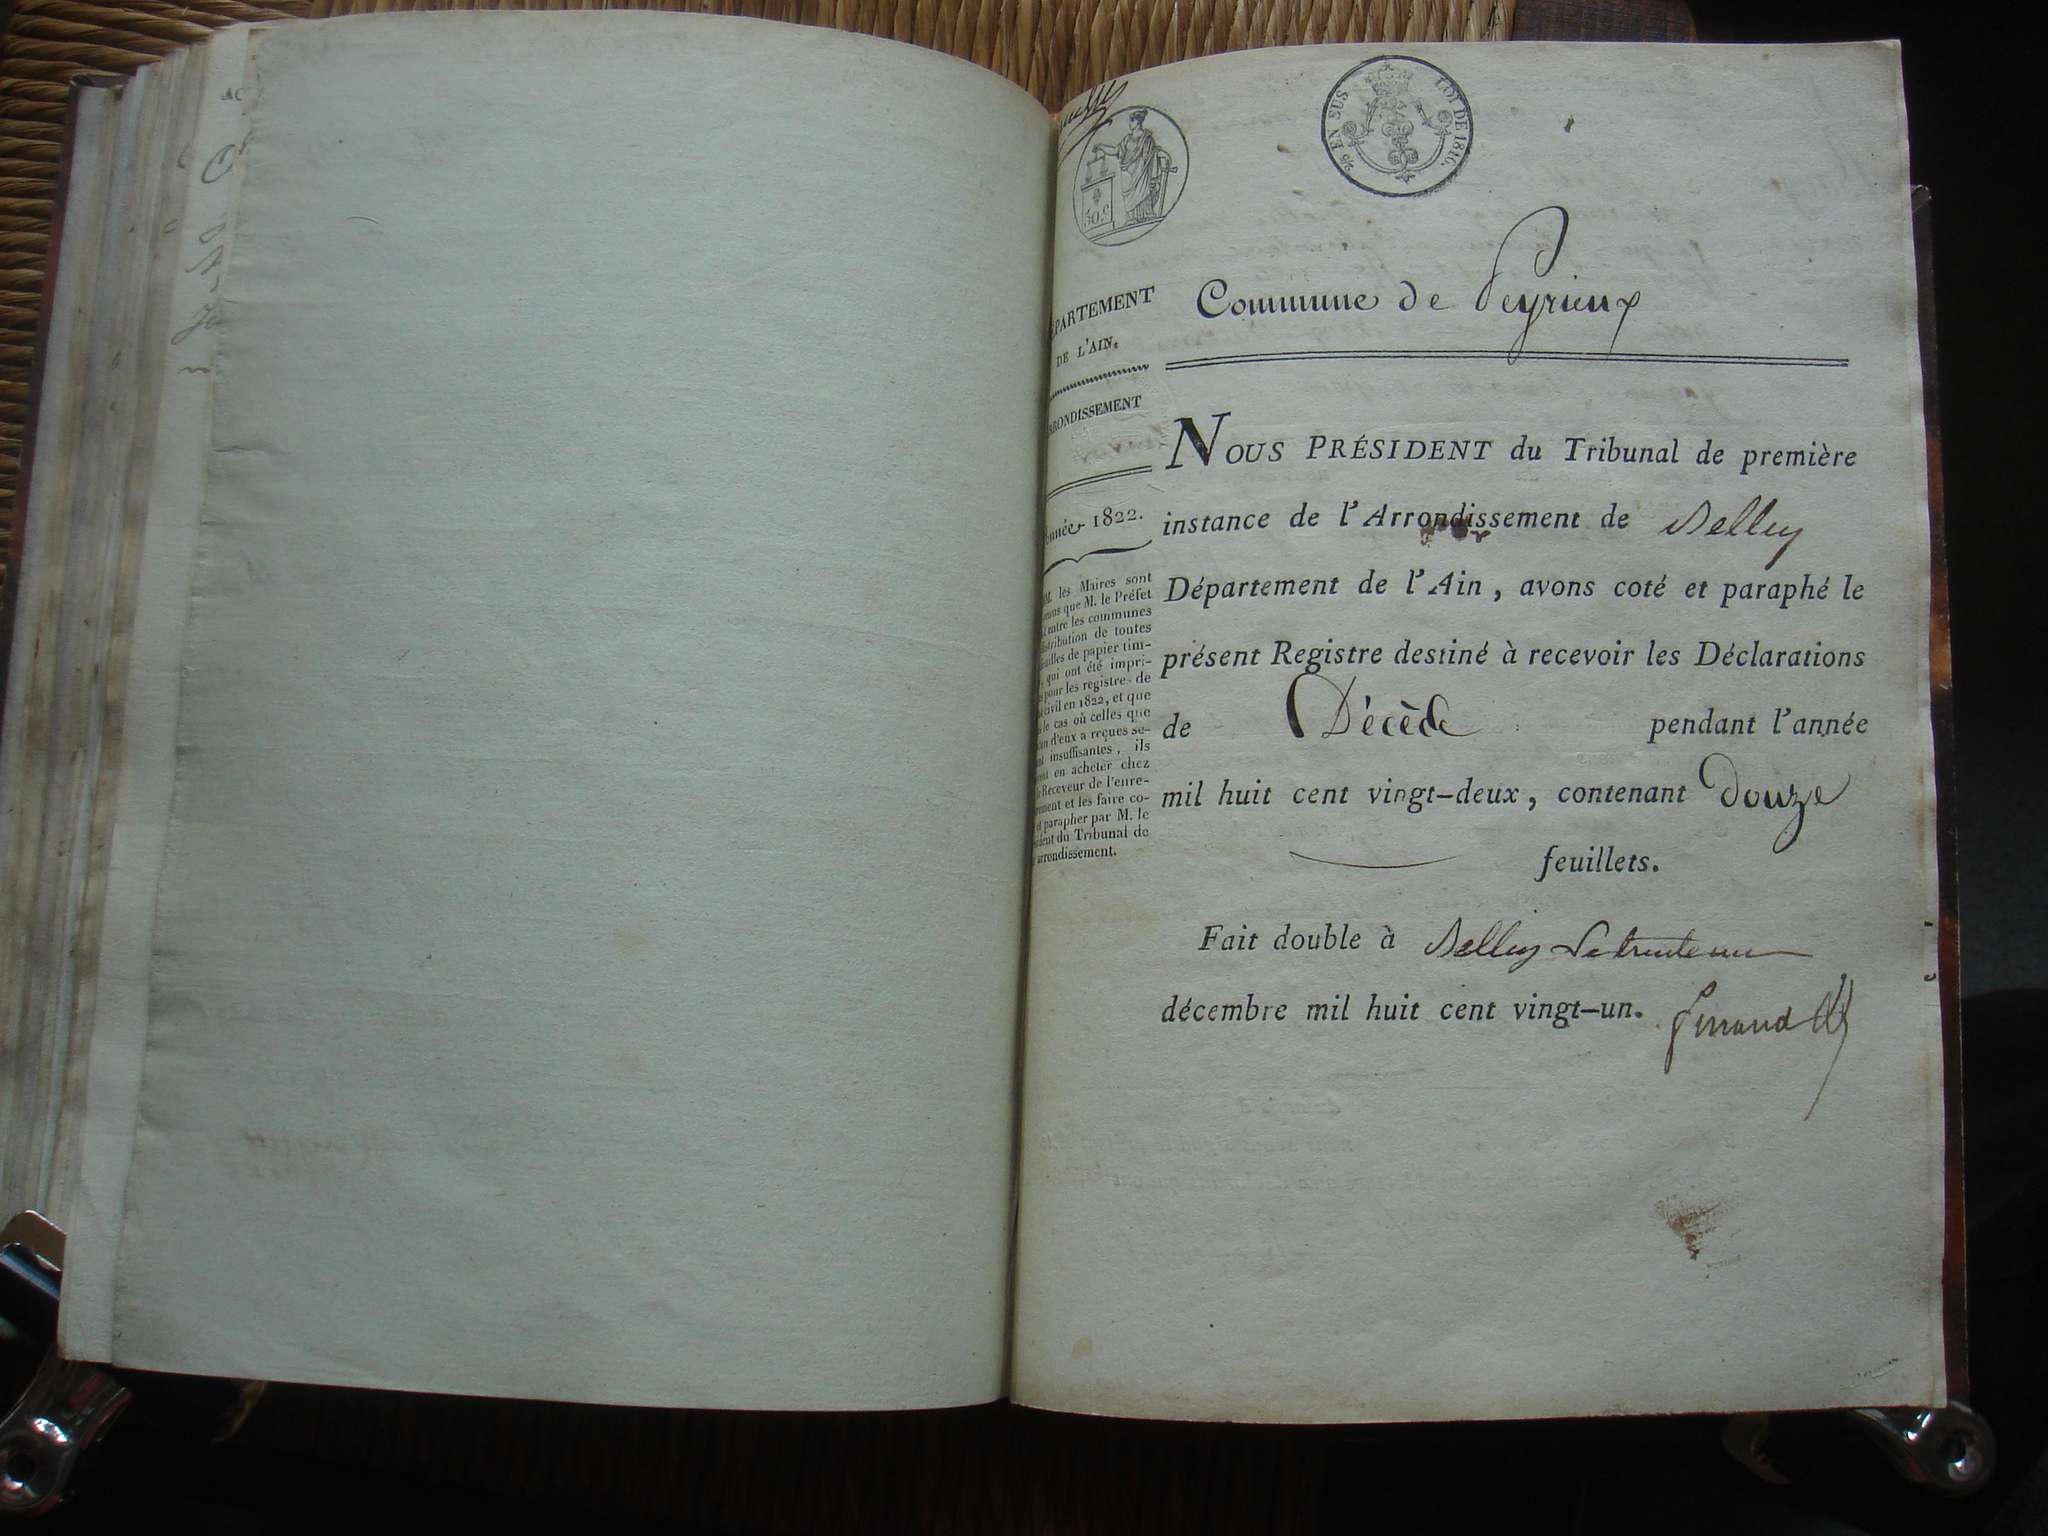 25 EN SUS LOI DE 1816.
50.C
Commune de Peyrieux
ÉPARTEMENT
DE L'AIN.
RRONDISSEMENT
nnée 1822.
MM. les Maires sont
enus que M. le Préfet
entre les communes
istribution de toutes
uilles de papier tim-
, qui ont été impri-
s pour les registre de
civil en 1822, et que
s le cas où celles que
un d'eux a reçues se-
nt insuffisantes, ils
ront en acheter chez
le Receveur de l'enre-
rement et les faire co-
et parapher par M. le
sident du Tribunal de
arrondissement.
NOUS PRÉSIDENT du Tribunal de première
instance de l'Arrondissement de Belley
Département de l'Ain, avons coté et paraphé le
présent Registre destiné à recevoir les Déclarations
de Décède pendant l'année
mil huit cent vingt-deux, contenant douze
feuillets.
Fait double à Belley Le trente un
décembre mil huit cent vingt-un.